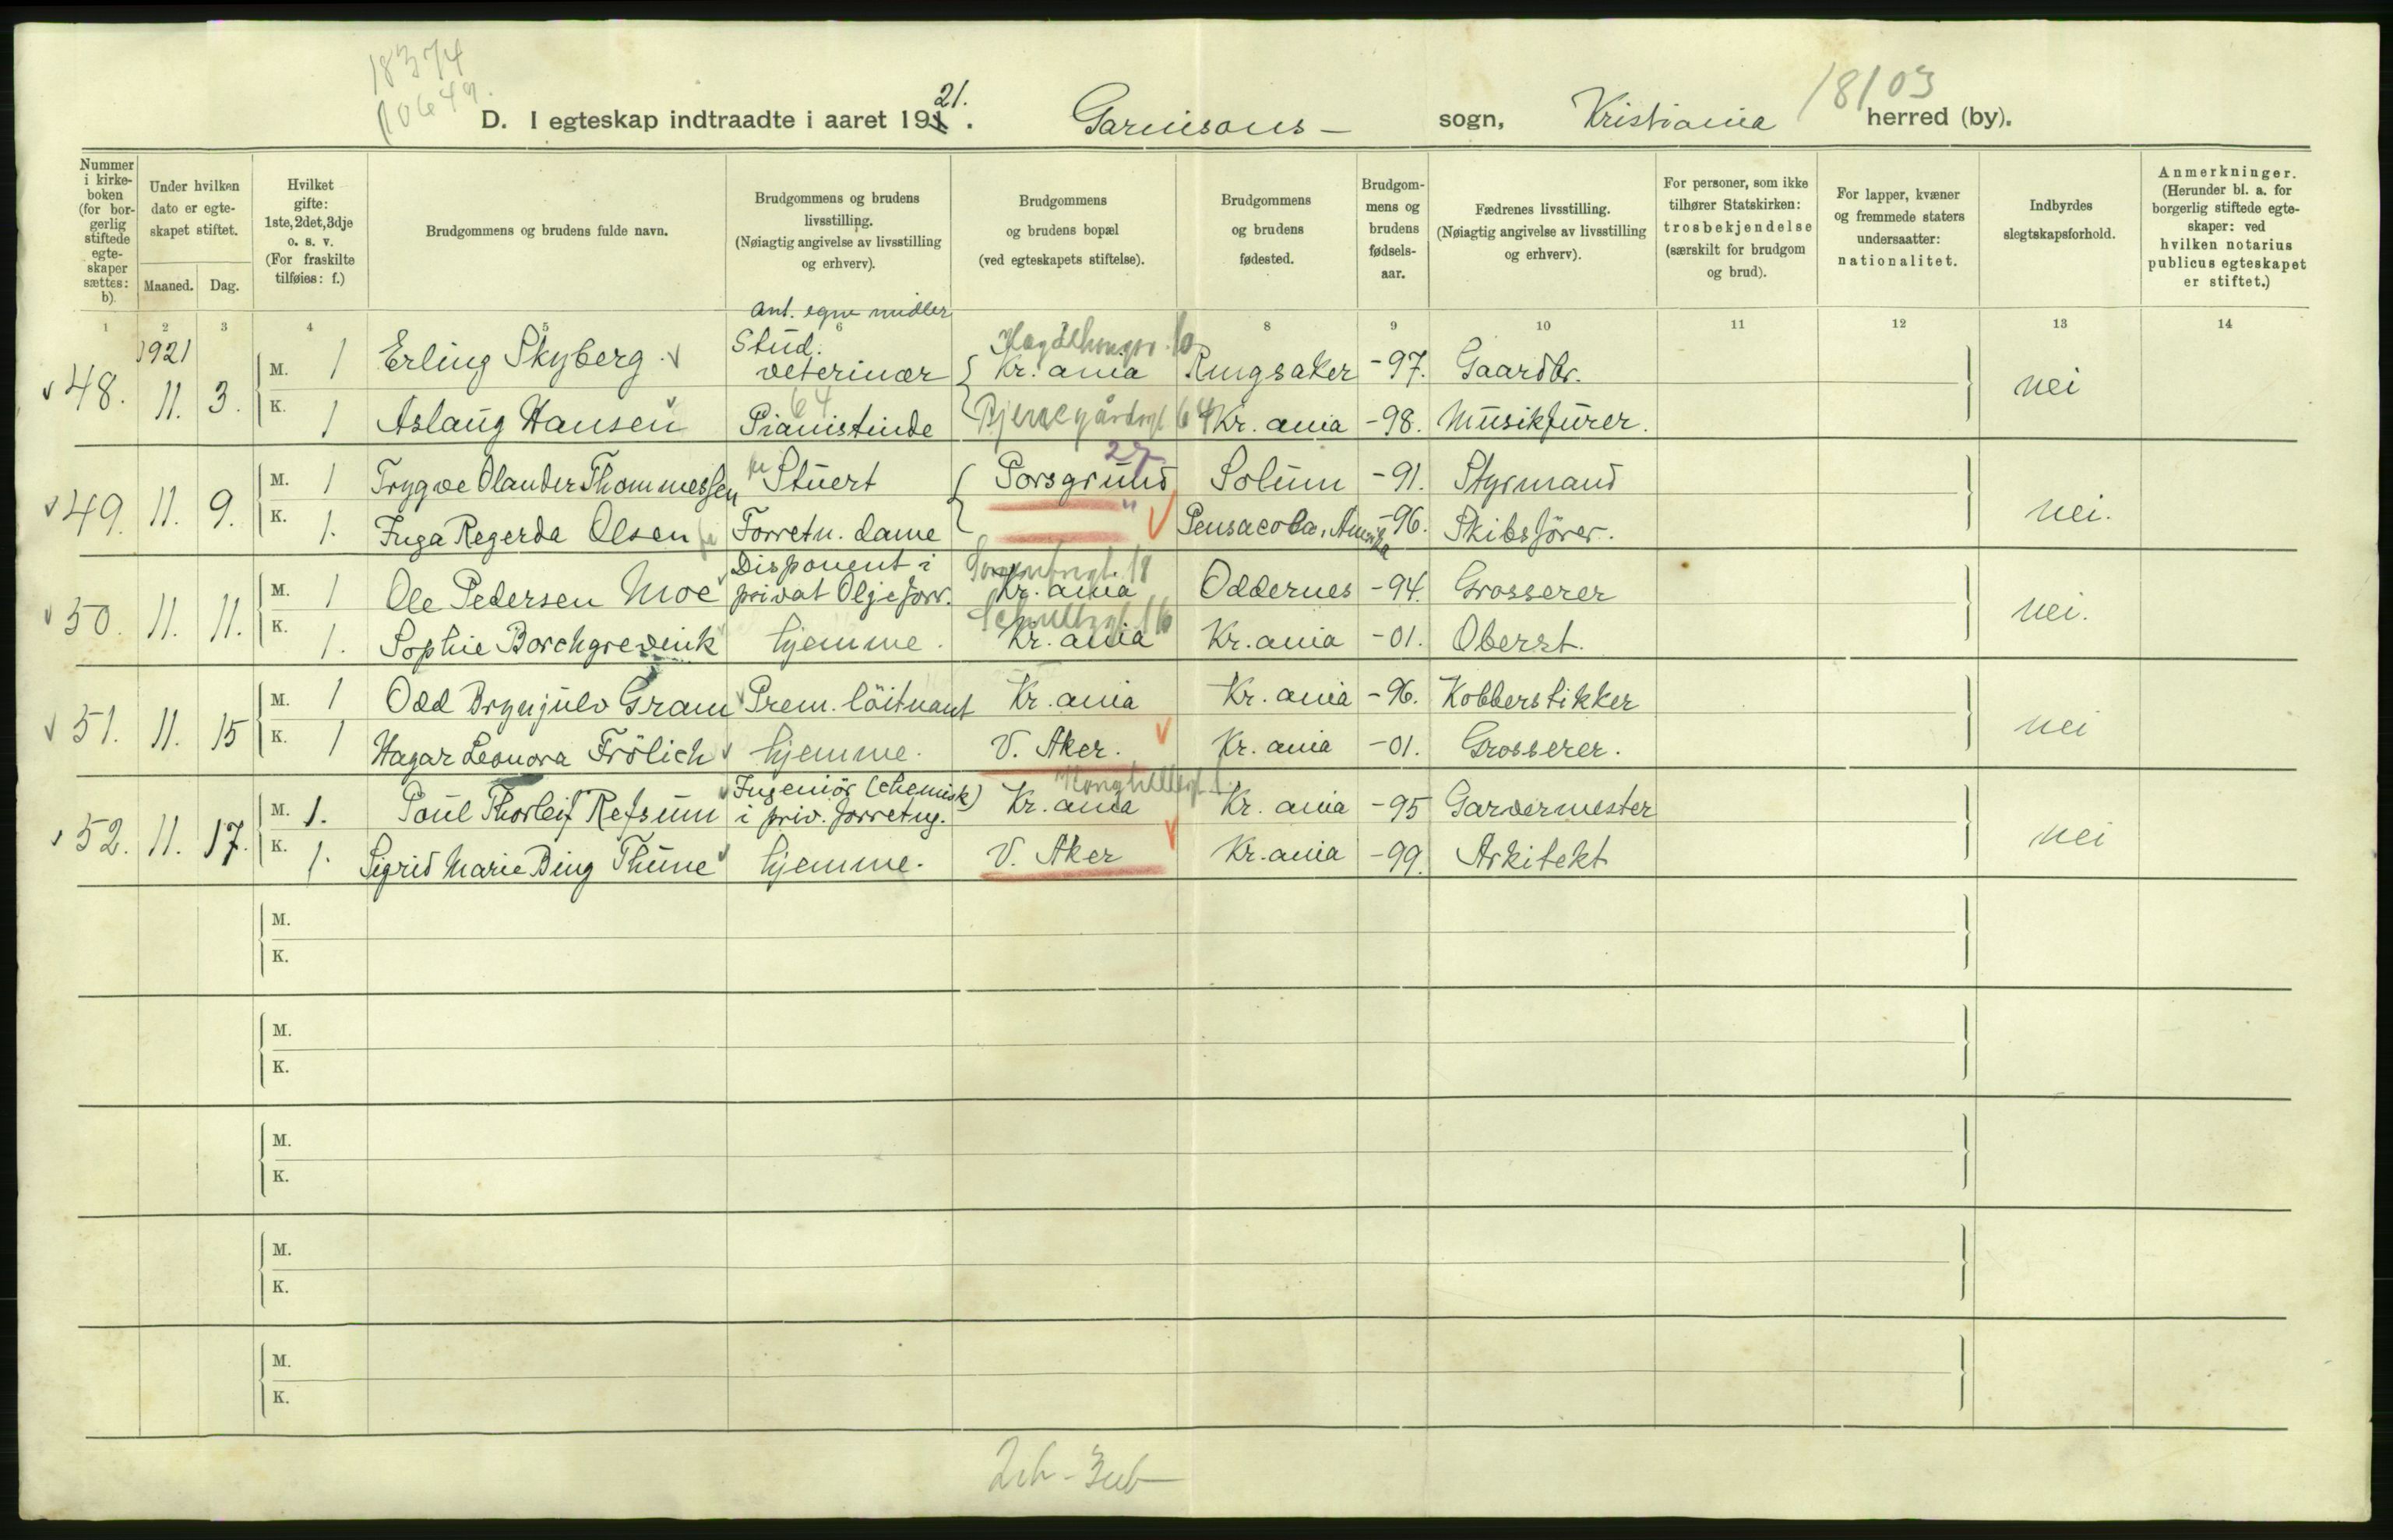 18374
10649.
18103
D. I egteskap indtraadte i aaret 1921. Garnisons- sogn, Kristiania herred (by).
Nummer i kirke-boken (for bor-gerlig stiftede egte-skaper sættes: b).
Under hvilken dato er egte-skapet stiftet.
Maaned. Dag.
Hvilket gifte: 1ste, 2det, 3dje o. s. v. (For fraskilte tilføies: f.)
Brudgommens og brudens fulde navn.
Brudgommens og brudens livsstilling. (Nøiagtig angivelse av livsstilling og erhverv).
Brudgommens og brudens bopæl (ved egteskapets stiftelse).
Brudgommens og brudens fødested.
Brudgom-mens og brudens fødsels-aar.
Fædrenes livsstilling. (Nøiagtig angivelse av livsstilling og erhverv).
For personer, som ikke tilhører Statskirken: trosbekjendelse (særskilt for brudgom og brud).
For lapper, kvæner og fremmede staters undersaatter: nationalitet.
Indbyrdes slegtskapsforhold.
Anmerkninger. (Herunder bl. a. for borgerlig stiftede egte-skaper: ved hvilken notarius publicus egteskapet er stiftet.)
1 2 3 4 5 6 8 9 10 11 12 13 14
1921
ant. egne midler
48. 11. 3. M. 1 Erling Skyberg Stud. veterinær Kr. ania Ringsaker -97. Gaardbr. nei
K. 1 Aslaug Hansen Pianistinde 64 Bjerregårdsgt 64 Kr. ania -98. Musikfürer.
49. 11. 9. M. 1 Trygve Olander Thommessen Stuert Porsgrund 27 Solum -91. Styrmand nei.
K. 1. Inga Regerda Olsen Forretn. dame " Pensacola, Amerika -96. Skibsförer.
50. 11. 11. M. 1 Ole Pedersen Moe Disponent i privat Oljeforr. Kr. ania Oddernes -94. Grosserer nei.
K. 1. Sophie Borchgrevink hjemme. Schultzgt 16 Kr. ania Kr. ania -01. Oberst.
51. 11. 15 M. 1 Odd Brynjulv Gram Prem. löitnant Kr. ania Kr. ania -96. Kobberstikker nei
K. 1 Hagar Leonora Frölich hjemme. V. Aker. Kr. ania -01. Grosserer.
52. 11. 17. M. 1. Poul Thorleif Refsum Ingeniör (chemisk) i priv. forretng. Kr. ania Kr. ania -95 Garvermester nei
K. 1. Sigrid Marie Bing Thune hjemme. V. Aker Kr. ania -99. Arkitekt
M.
K.
M.
K.
M.
K.
M.
K.
M.
K.